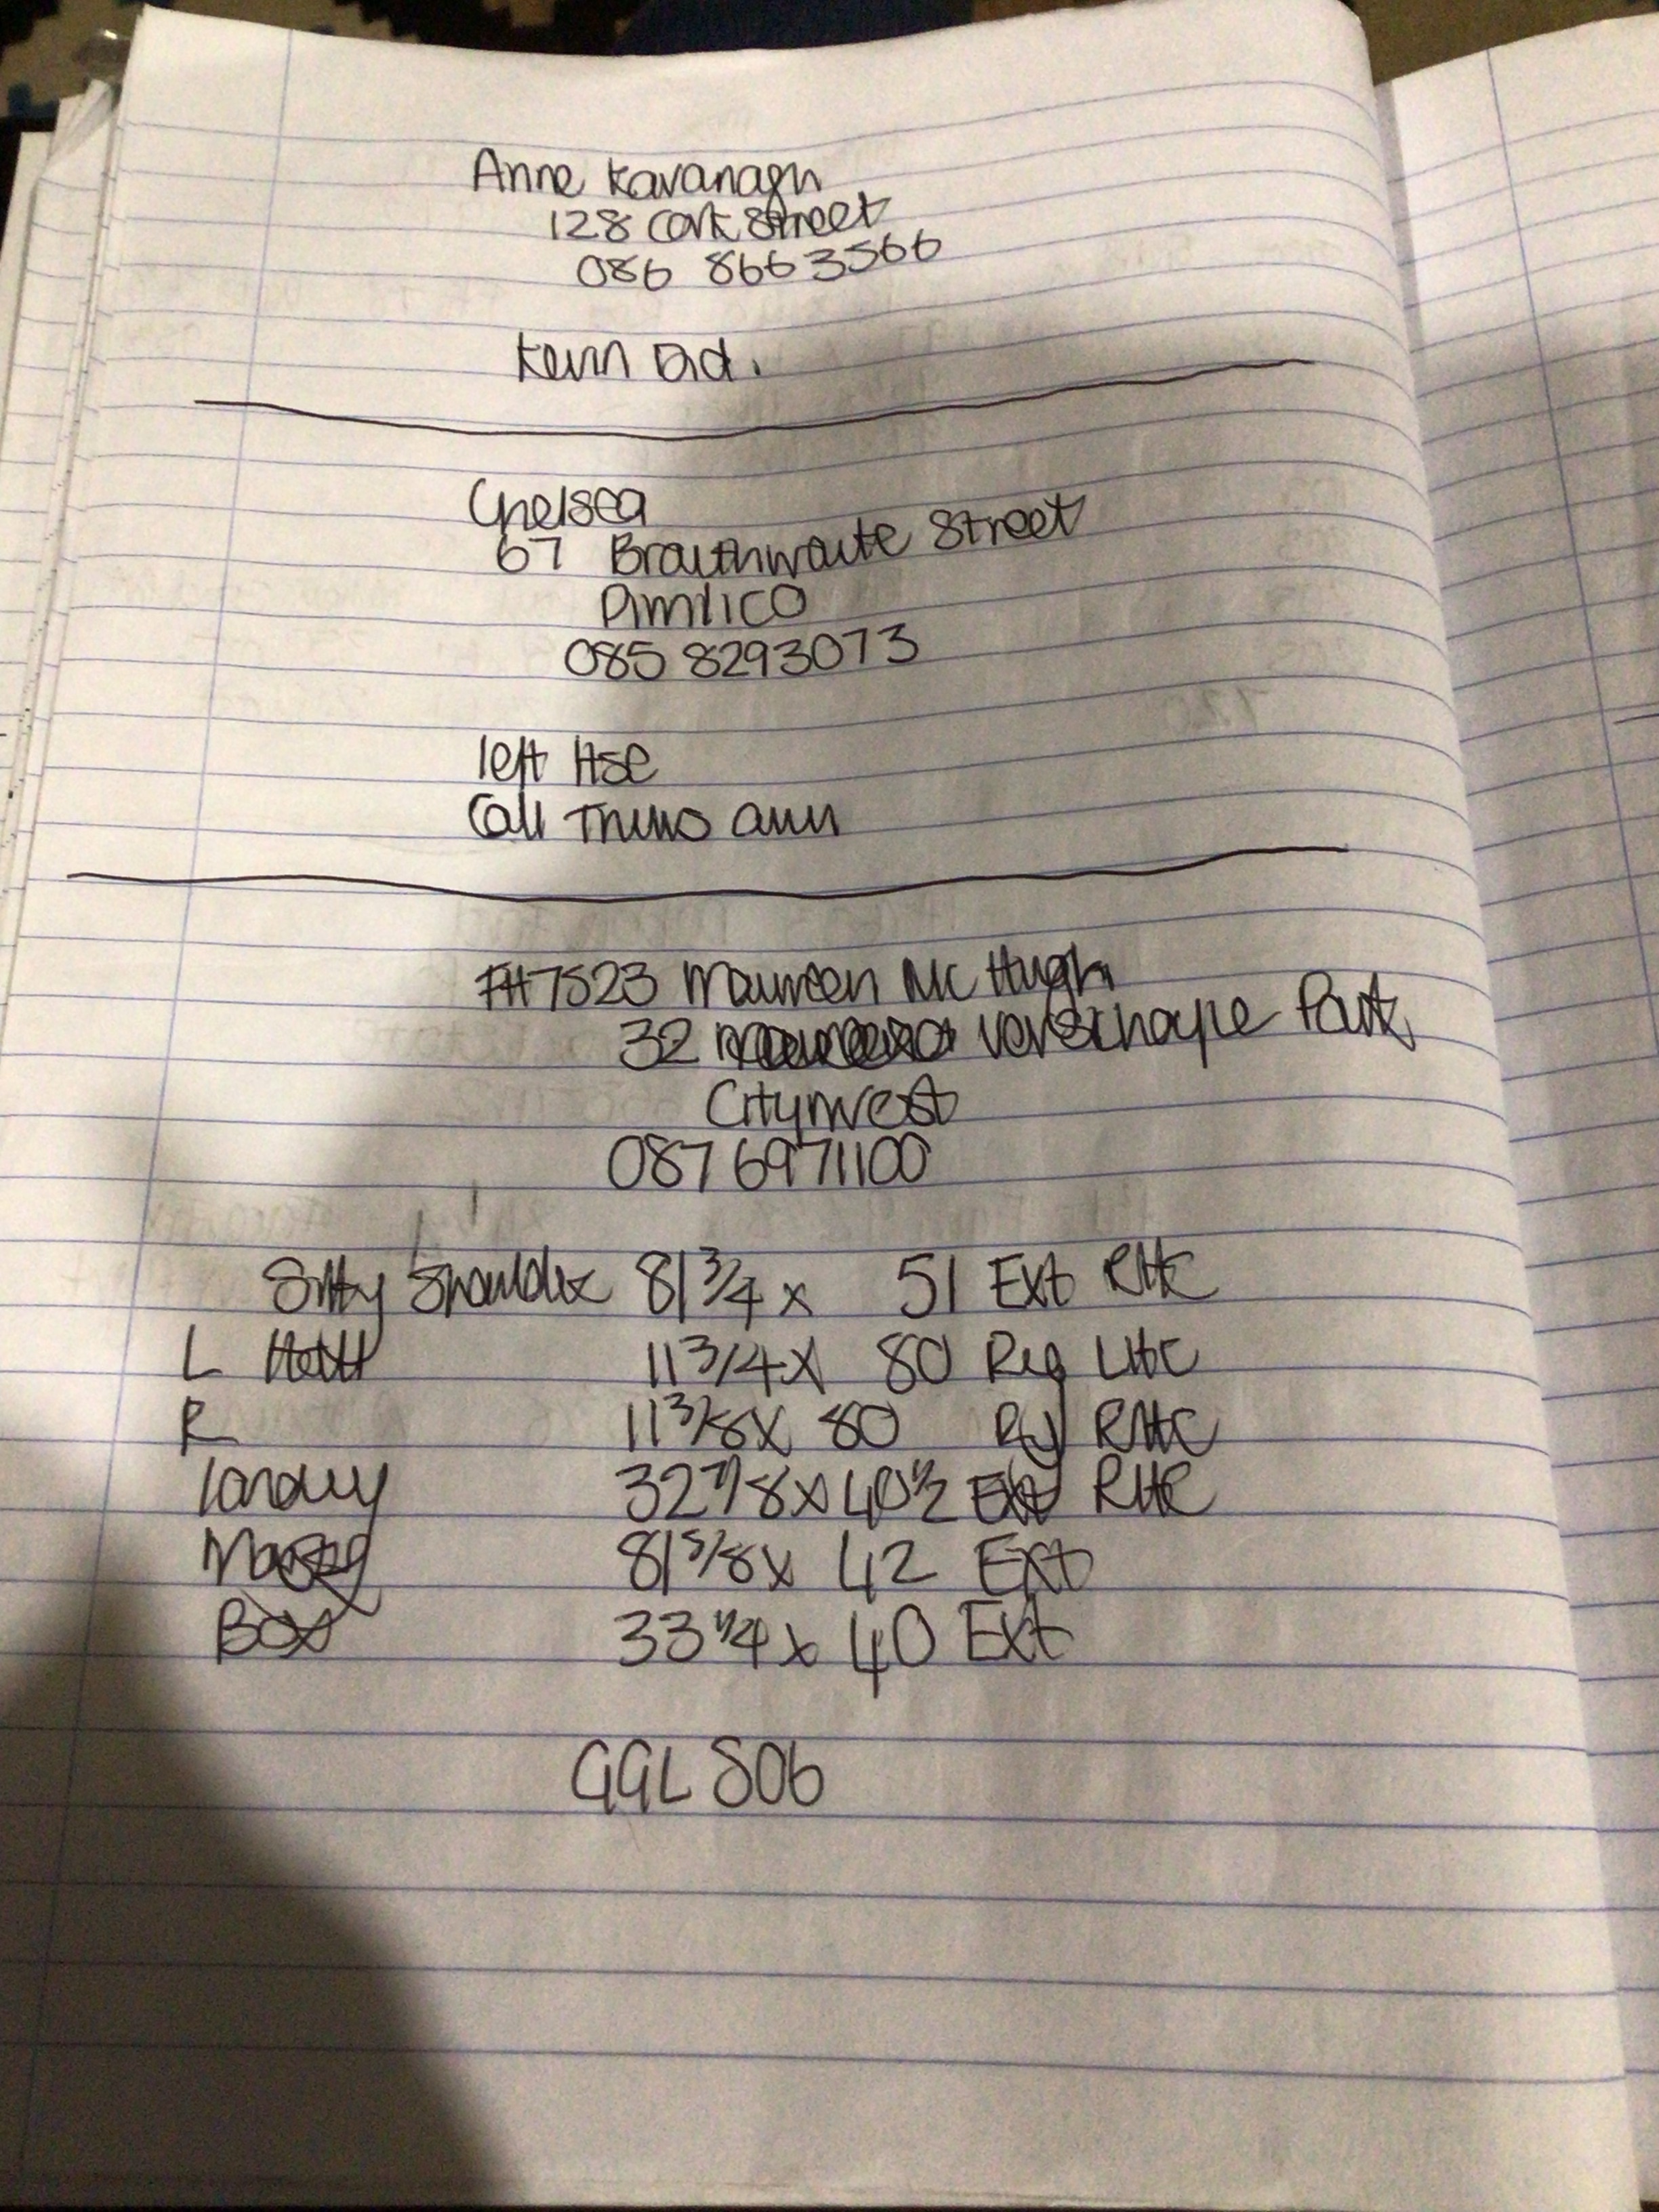 Anne Kavanagh
128 Cork Street
086 8663566
Kevin Did.
Chelsea
67 Braithwaite Street
Pimlico
085 8293073
left Hse
Call Thurs
FH7523 Maureen Mc Hugh
32 Verschoyle Park
Citywest
087 6971100
81 3/4 x 51 Ext RHC
L 11 3/4 x 80 Reg LHC
R 11 3/8 x 80 Reg RHC
Landing 32 7/8 x 40 1/2 Ext RHC
81 5/8 x 42 Ext
Box 33 1/4 x 40 Ext
GGL S06